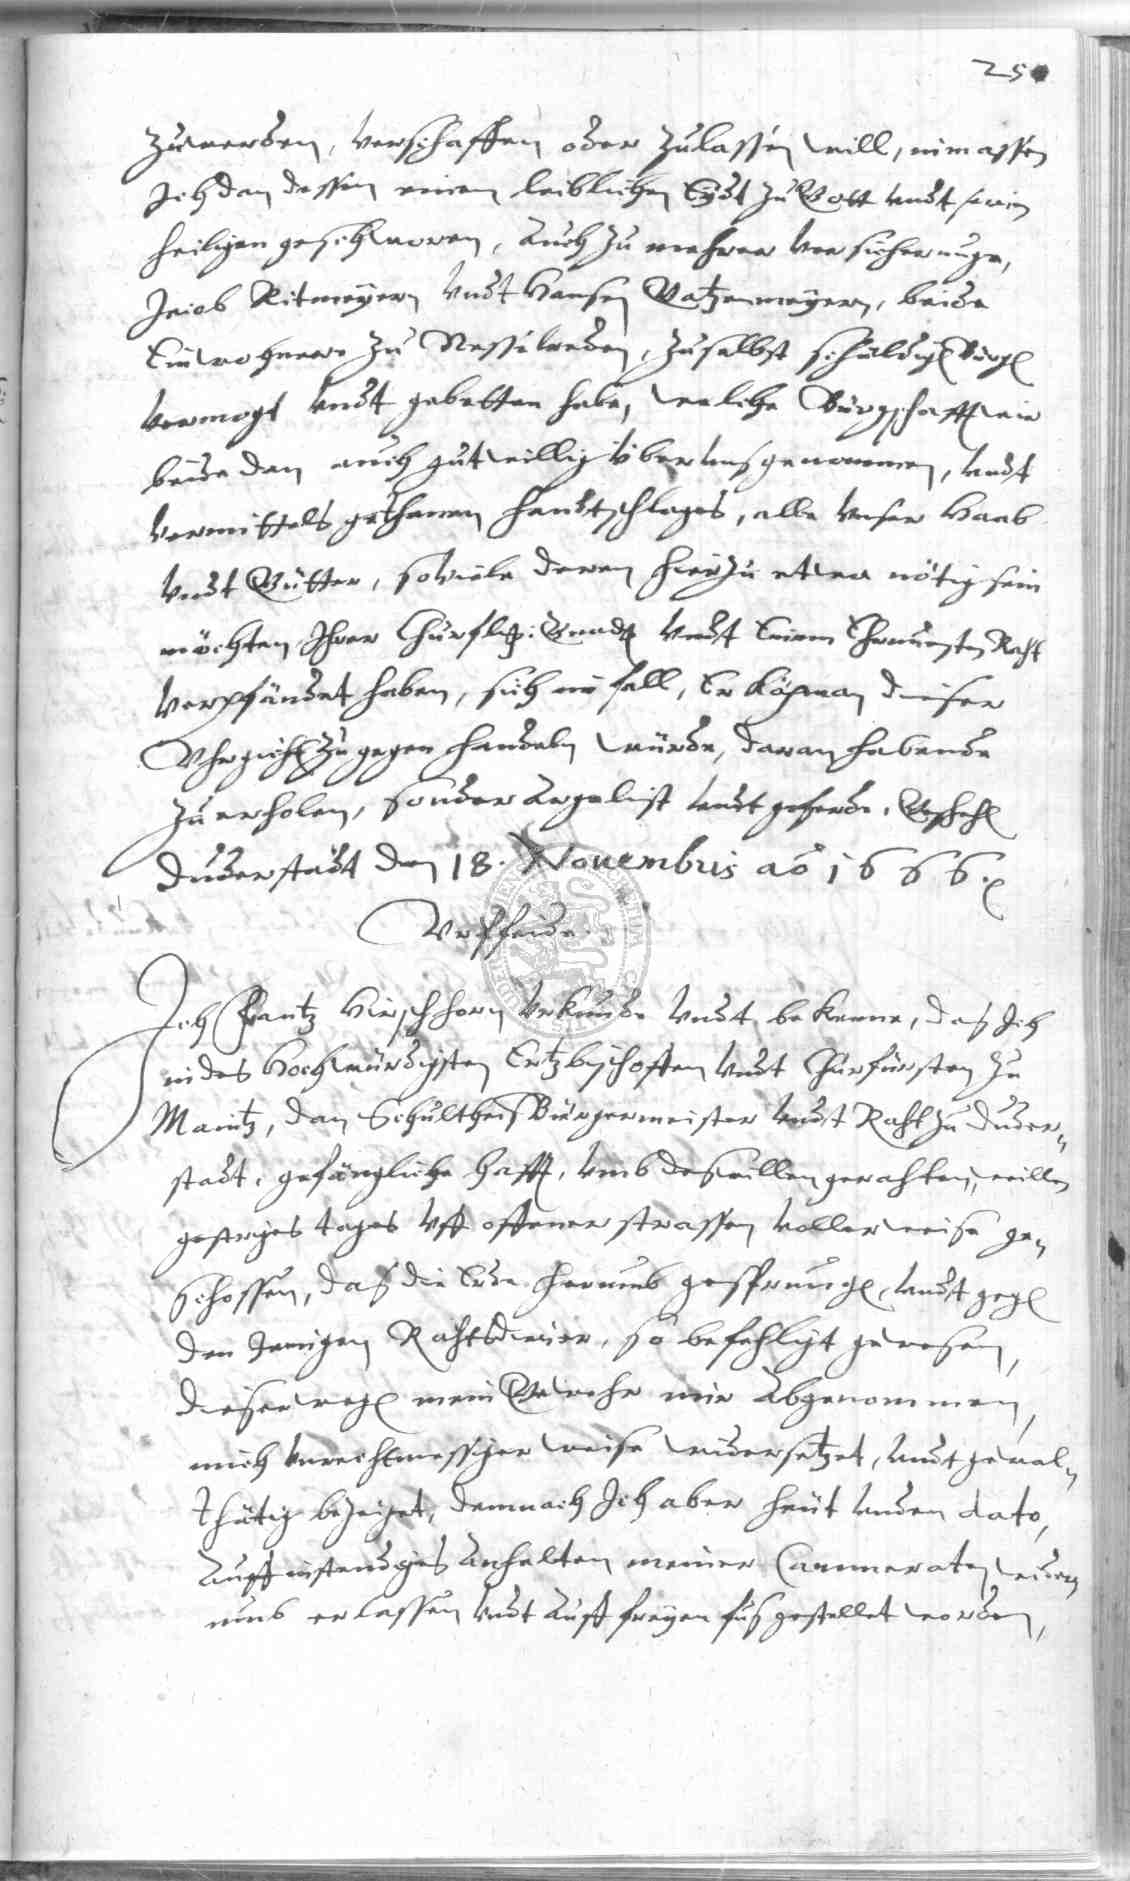 250
zuwerden, verschaffen oder zulassen will, inmassen
Ich dan dessen einen leiblichen Eydt zu Gott undt sein
heiligen geschworen, Auch zu mehrer versicherunge,
Jacob Ritmeyern undt Hansen Natzenmeyern, beide
Einwohnere zu Nesselreden, zu selbst schuldigen Bürgen
vermogt undt gebetten habe, welche Bürgschafft wir
beide dan auch gutwillig über uns genommen, undt
vermittels gethanen handtschlages, alle unser Haab
undt Gütter, soviele deren hierzu etwa nötig sein
möchten Ihrer Churfl: Gnaden undt Einem Ehrnvesten Raht
verpfändet haben, sich im fall, Er Köpman dieser
Uhrpicht zugegen handeln würde, daran habende
zu erholen, sonder Argelist undt geferde. Geschehen
Duderstadt den 18. Novembris ao 1666.
Urfheide.
Ich Frantz Hirschhorn urkunde undt bekenne, das Ich
in des Hochwürdigsten Ertzbischoffen undt Churfürsten zu
Maintz, dan Schultheis Bürgermeister undt Raht zu Duder-
stadt, gefängliche hafft, umb deswillen gerahten, weillen
gestriges tages uff offener strassen voller weise ge-
schossen, das die Erde herumb gesprungen, undt gegen
den Jenigen Rahtsdiener, so befehligt gewesen,
dieserwegen mein Gewehr mir abgenommen,
mich unrechtmessiger weise widersetzet, undt gewal-
thätig bezeiget, demnach Ich aber heut unden dato,
Auff instendiges Anhalten meiner Cammeraten wider
umb erlassen undt auff freyen fus gestellet worden,